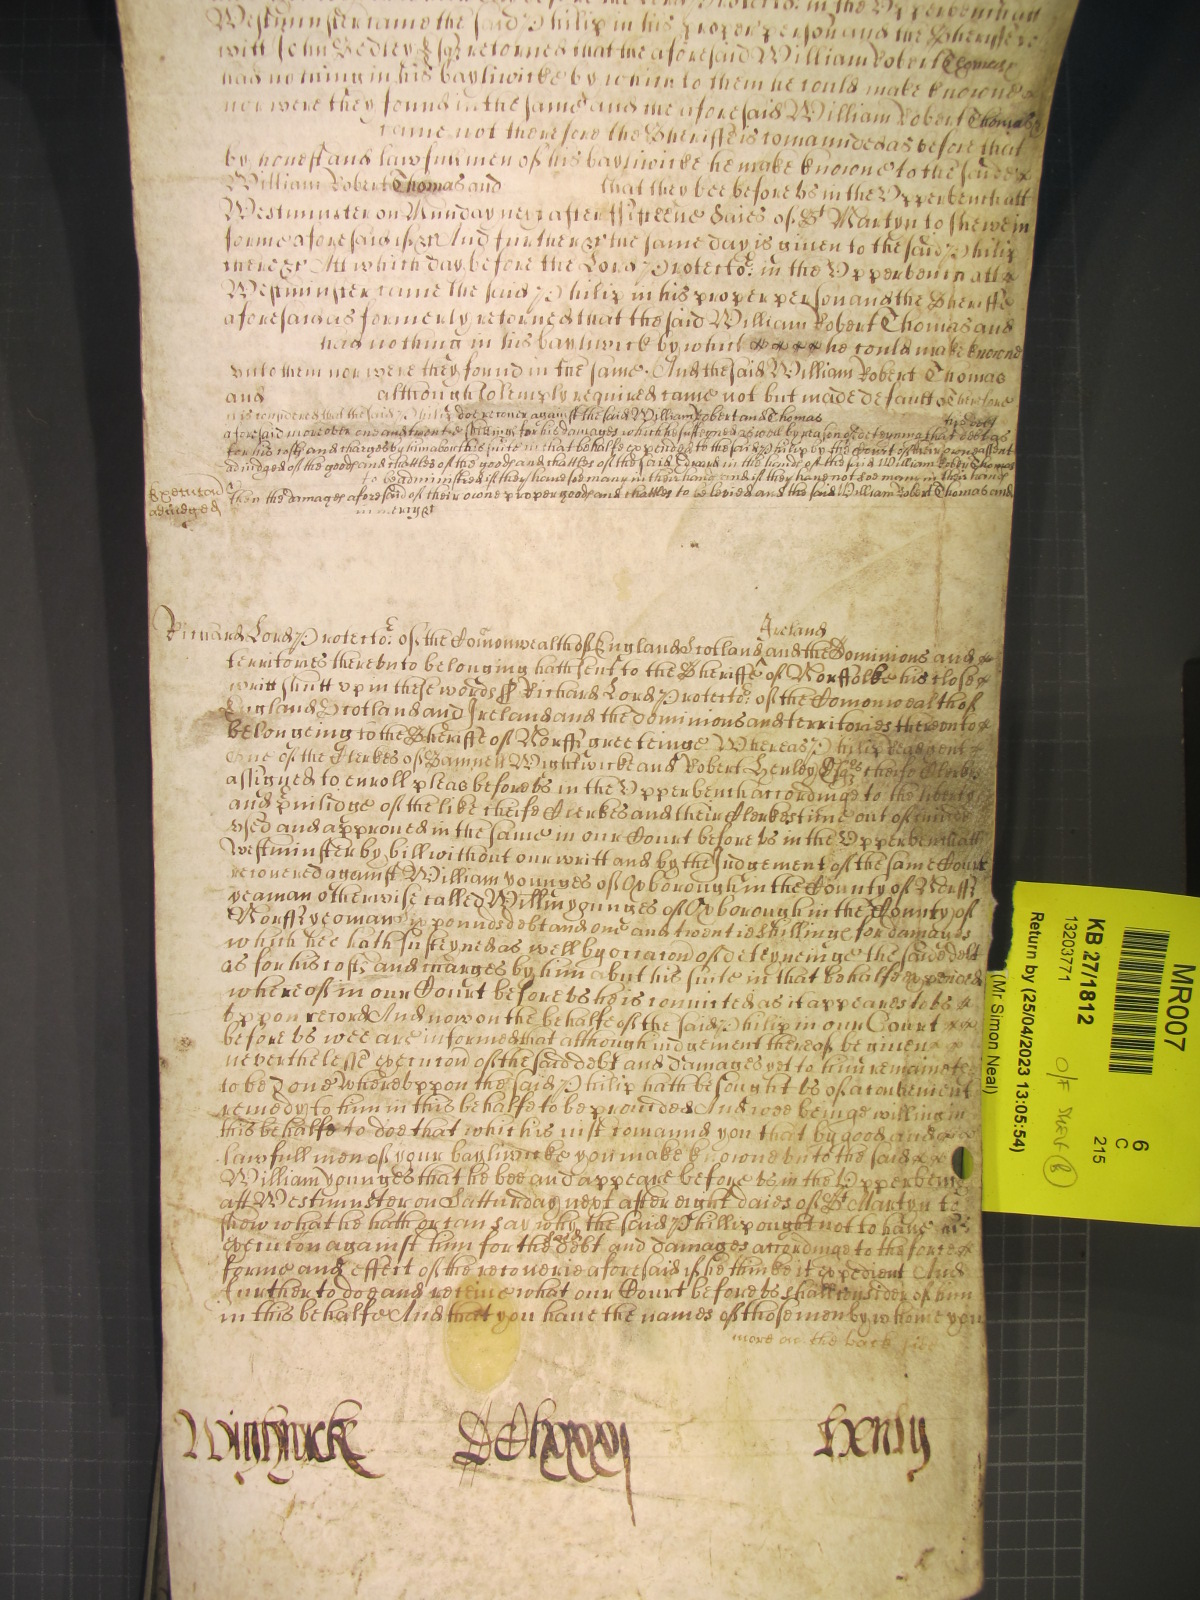 Westminster came the said Philip in his proper person and the Sheriffe
witt John Bedley Esqr returned that the aforesaid William Robert Thomas
had nothing in his bayliwicke by which to them he could make knowne
nor were they found in the same and the aforesaid William Robert Thomas
came not therefore the Sheriffe is comaunded as before that
by honest and lawfull men of his bayliwicke he make knowne to the said
William Robert Thomas and that they bee before us in the Upperbench att
Westminster on Munday next after fifteene daies of St Martyn to shewe in
forme aforesaid if &c And further &c the same day is given to the said Philip
there &c Att which day before the Lord Protector in the Upperbench att
Westminster came the said Philip in his proper person and the Sheriffe
aforesaid as formerly returned that the said William Robert Thomas and
had nothing in his bayliwick by which he could make knowne
unto them nor were they found in the same And the said William Robert Thomas
and although solemply required came not but made default Therefore
it is considered that the said Philip doe recover against the said William Robert and Thomas his debt
aforesaid moreover one and twentie shillings for his damages which he susteyned as well by reason of deteyning that debt as
for his costs and charges by him about his suite in that behalfe expended to the said Philip by the Court of their owne assent
adiudged of the goods and chattles of the goods and chattles of the said Edward in the hands of the said William Robert Thomas
to be administred if they have soe many in their hands and if they have not soe many in their hands
Then the damages aforesaid of their owne proper goods and chattles to be levied and the said William Robert Thomas and
in mercy &c
Execucon
adiudged
Richard Lord Protector of the Comonwealth of England Scotland Ireland and the Dominions and
territories thereunto belonging hath sent to the Sheriffe of Norffolke his close
writt shutt up in these words ss Richard Lord Protector of the Comonwealth of
England Scotland and Ireland and the dominions and territories thereunto
belongeing to the Sheriffe of Norff greeteinge Whereas Philip Read gent
One of the Clerkes of Samuell Wightwicke and Robert Henley Esqrs cheife Clerks
assigned to enroll pleas before us in the Upperbench accordinge to the liberty
and priviledge of the like cheife Clerkes and their Clerkes time out of minde
used and approved in the same in our Court before us in the Upperbench att
Westminster by bill without our writt and by the Judgement of the same Court
recovered against William younges of Oxborough in the County of Norff
yeaman otherwise called Willm younges of Oxborough in the County of
Norff yeoman pounds debt and one and twentie shillings for damages
which hee hath susteyned as well by occacon of deteyneinge the said debt
as for his costs and charges by him about his suite in that behalfe expended
whereof in our Court before us he is convicted as it appeares to us
uppon record And now on the behalfe of the said Philip in our Court
before us wee are informed that although iudgement thereof be given
neverthelesse execucon of the said debt and damages yet to him remaines
to be done whereuppon the said Philip hath besought us of a convenient
remedy to him in this behalfe to be provided And wee beinge willing in
this behalfe to doe that which is iust comannd you that by good and
lawfull men of your bayliwicke you make knowne unto the said
William younges that he bee and appeare before us in the Upperbench
att Westminster on Satturday next after eight daies of St Martyn to
show what he hath or can say why the said Phillip ought not to have
execucon against him for the said debt and damages accordinge to the force
forme and effect of the recoverie aforesaid if he thinke it expedient And
further to doe and receive what our Court before us shall consider of him
in this behalfe And that you have the names of those men by whome you
more on the back side
Wightwick Henly
MR007
KB 27/1812
13203771
6
C
215
O/F Sheet B
Return by (25/04/2023 13:05:54)
(Mr Simon Neal)